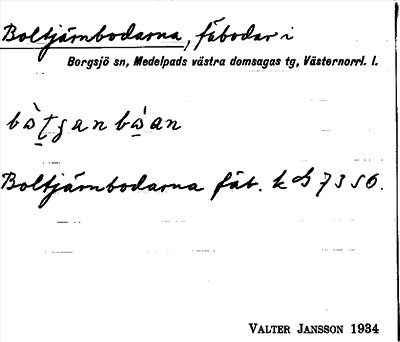 Boltjärnbodarna, fäbodar i
Borgsjö sn, Medelpads västra domsagas tg, Västernorrl. l.
Boltjärnbodarna fäb. k
VALTER JANSSON 1934